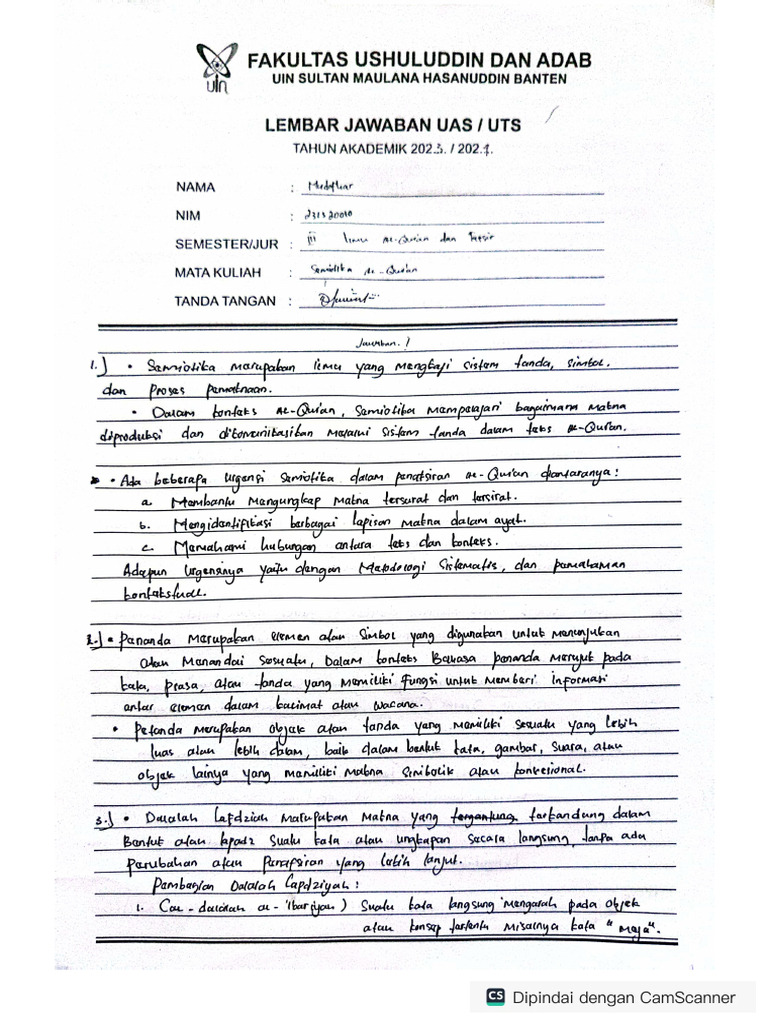 uin
FAKULTAS USHULUDDIN DAN ADAB
UIN SULTAN MAULANA HASANUDDIN BANTEN
LEMBAR JAWABAN UAS / UTS
TAHUN AKADEMIK 2023. / 2024.
NAMA :
NIM : 231320010
SEMESTER/JUR : III Ilmu Al-Qur'an dan Tafsir
MATA KULIAH : Semiotika Al-Qur'an
TANDA TANGAN :
Jawaban !
1.) • Semiotika merupakan ilmu yang mengkaji sistem tanda, simbol.
dan Proses pemaknaan.
• Dalam konteks Al-Qur'an, Semiotika mempelajari bagaimana makna
diproduksi dan dikomunikasikan melalui sistem tanda dalam teks Al-Qur'an.
• Ada beberapa urgensi Semiotika dalam penafsiran Al-Qur'an diantaranya :
a. Membantu Mengungkap makna tersurat dan tersirat.
b. Mengidentifikasi berbagai lapisan makna dalam ayat.
c. Memahami hubungan antara teks dan konteks.
Adapun Urgensinya yaitu dengan Metodologi Sistematis, dan pemahaman
kontekstual.
2.) • Penanda Merupakan elemen atau Simbol yang digunakan untuk menunjukan
atau Menandai sesuatu, Dalam konteks Bahasa penanda merujuk pada
kata, prasa, atau tanda yang memiliki fungsi untuk memberi informasi
antar elemen dalam kalimat atau wacana.
• Petanda merupakan objek atau tanda yang memiliki sesuatu yang lebih
luas atau lebih dalam, baik dalam bentuk kata, gambar, suara, atau
objek lainya yang memiliki makna simbolik atau konvesional.
3.) • Dalalah Lapdziah merupakan Makna yang tergantung terkandung dalam
Bentuk atau lapadz suatu kata atau ungkapan secara langsung, tanpa ada
perubahan atau Penafsiran yang lebih lanjut.
Pembagian Dalalah Lapdziyah :
1. (al-dalalah al-'Ibariyah) Suatu kata langsung mengarah pada objek
atau konsep tertentu misalnya kata "Meja".
CS Dipindai dengan CamScanner